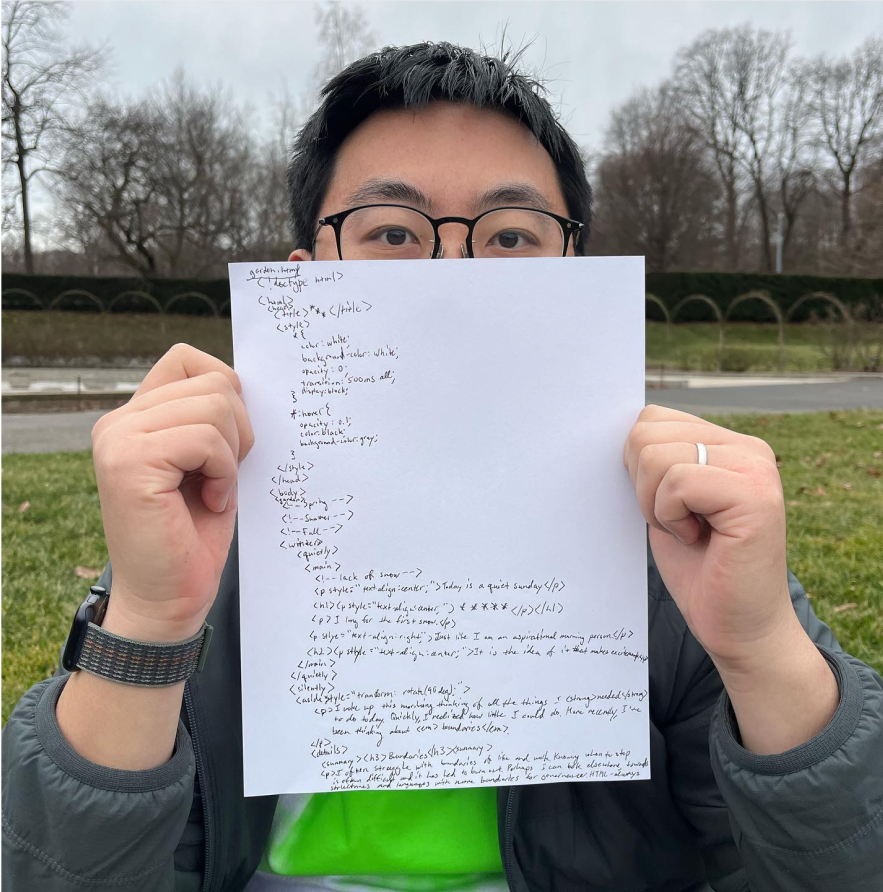 garden.html
<!doctype html>
<html>
<head>
<title>***</title>
<style>
*{
color: white;
background-color: white;
opacity: 0;
transition: 500ms all;
display: block;
}
*:hover{
opacity: 0.1;
color: black;
background-color: gray;
}
</style>
</head>
<body>
<garden>
<!--Spring-->
<!--Summer-->
<!--Fall-->
<winter>
<quietly>
<main>
<!--lack of snow-->
<p style="text-align:center;">Today is a quiet Sunday</p>
<h1><p style="text-align:center;">*****</p></h1>
<p>I long for the first snow.</p>
<p style="text-align:right;">Just like I am an aspirational morning person.</p>
<h2><p style="text-align:center;">It is the idea of it that makes
</main>
</quietly>
<silently>
<aside style="transform: rotate(90deg);">
<p>I woke up this morning thinking of all the things I <strong>needed</strong>
to do today. Quickly, I realized how little I could do. More recently, I've
been thinking about <em>boundaries</em>.
</p>
<details>
<summary><h3>Boundaries</h3><summary>
<p>I often struggle with boundaries of life and work. Knowing when to stop
is often difficult and it has led to burn out. Perhaps I can look elsewhere, towards
structures and languages with more boundaries for governance. HTML always